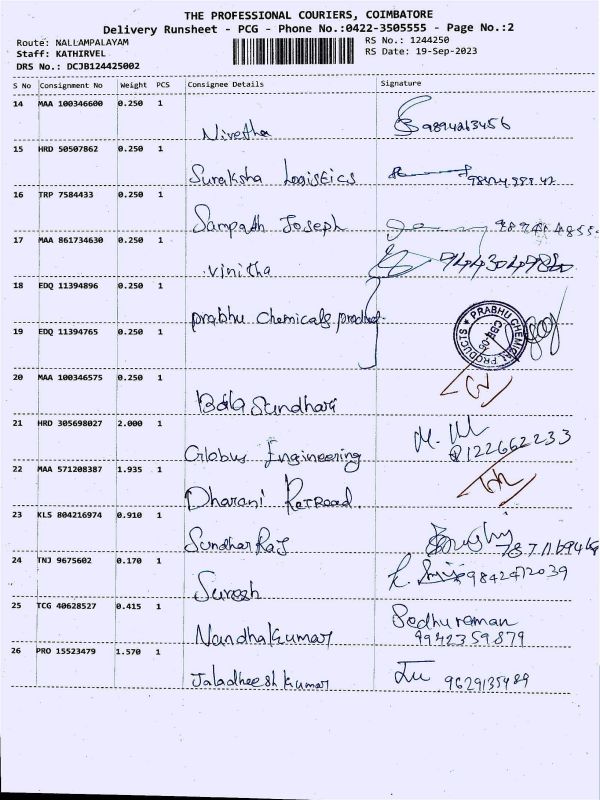 THE PROFESSIONAL COURIERS, COIMBATORE
Delivery Runsheet - PCG - Phone No.:0422-3505555 - Page No.:2
Route: NALLAMPALAYAM RS No.: 1244250
Staff: KATHIRVEL RS Date: 19-Sep-2023
DRS No.: DCJB124425002
S No Consignment No Weight PCS Consignee Details Signature
14 MAA 100346600 0.250 1
Nivetha 9894213456
15 HRD 50507862 0.250 1
Suraksha Logistics
16 TRP 7584433 0.250 1
Sampath Joseph
17 MAA 861734630 0.250 1
vinitha
18 EDQ 11394896 0.250 1
prabhu chemicals product
PRABHU CHEMICAL PRODUCTS ★ CBE-06
19 EDQ 11394765 0.250 1
20 MAA 100346575 0.250 1
Bala Sundhari
21 HRD 305698027 2.000 1
Globus Engineering 8122662233
22 MAA 571208387 1.935 1
Dharani Retroad
23 KLS 804216974 0.910 1
Sundhar Raj
24 TNJ 9675602 0.170 1
Suresh 9842472039
25 TCG 40628527 0.415 1
Nandhakumar Sedhuraman
9942359879
26 PRO 15523479 1.570 1
Jaladheesh kumar 9629135489